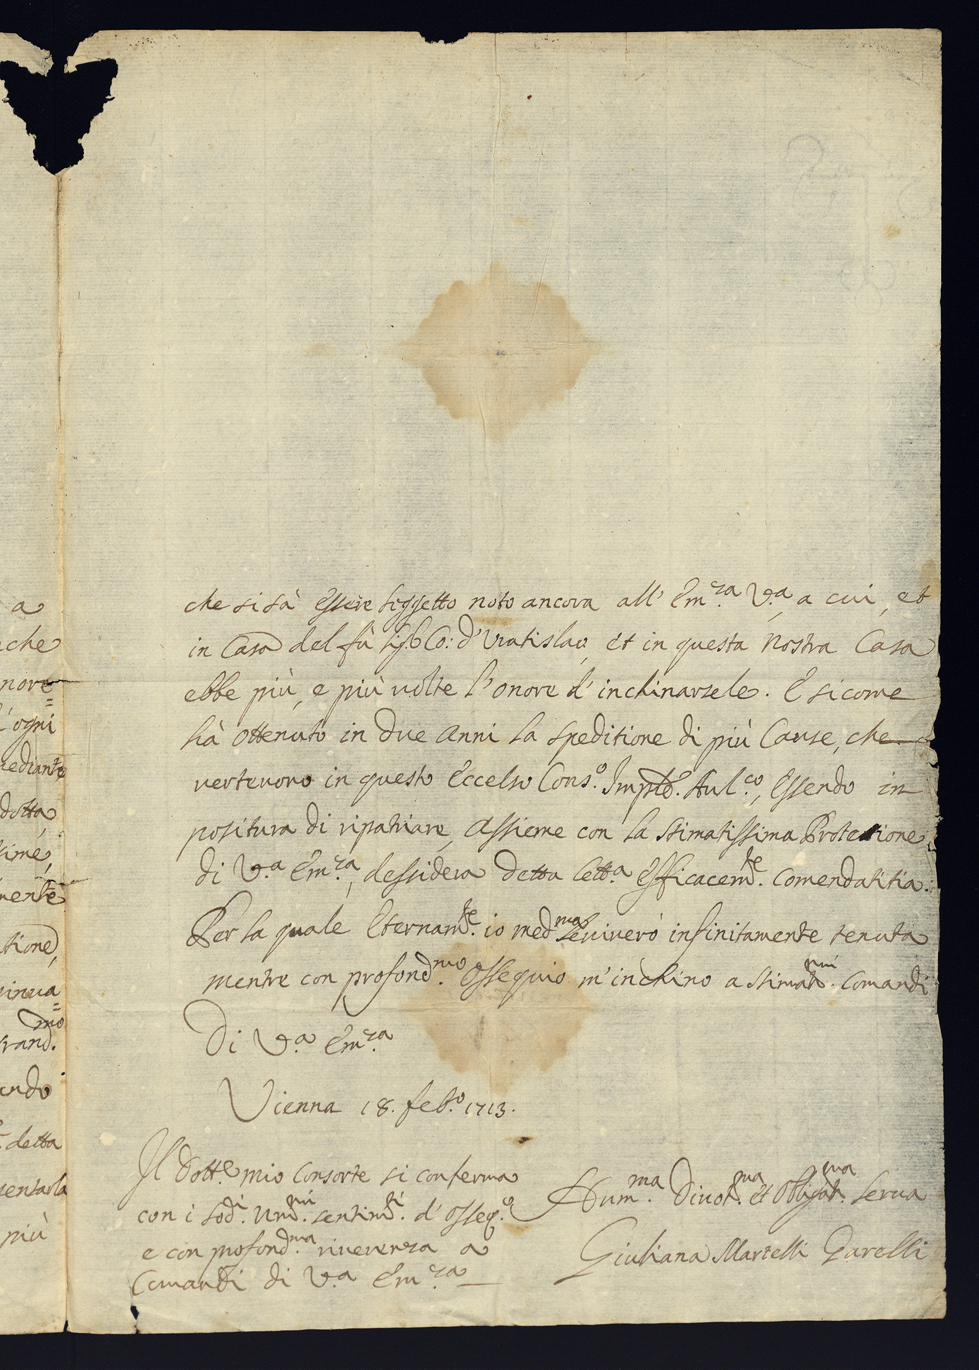 a
che
nore=
l'ogni
mediante
dotta,
time,
mente
tione,
=
mo
grand.
ando
detta
sentarla
più
che si sà essere soggetto noto ancora all' Em.za V.a a cui, et
in Casa del fù Sig.r Co: d'Vratislau, et in questa nostra Casa
ebbe più, e più uolte l'onore d'inchinarsele. E sicome
hà ottenuto in due anni la speditione di più Cause, che
verteuono in questo Eccelso Cons.o Imple. Aul.co, essendo in
positura di ripatriare, assieme con la stimatissima Protettione
di V.a Em.za, dessidera detta lett.a efficacem.te comendatitia.
Per la quale eternam.te io med.ma le uiuerò infinitamente tenuta
mentre con profond.mo ossequio m'inchino a stimat.mi comandi
Di V.a Em.za
Vienna 18. feb.o 1713.
Il Dott.e mio Consorte si conferma
con i sod.i um.mi sentim.ti d'osseq.o
e con profond.ma riuerenza a
Comandi di V.a Em.za
Hum.ma Diuot.ma et Obligat.ma Serua
Giuliana Martelli Garelli